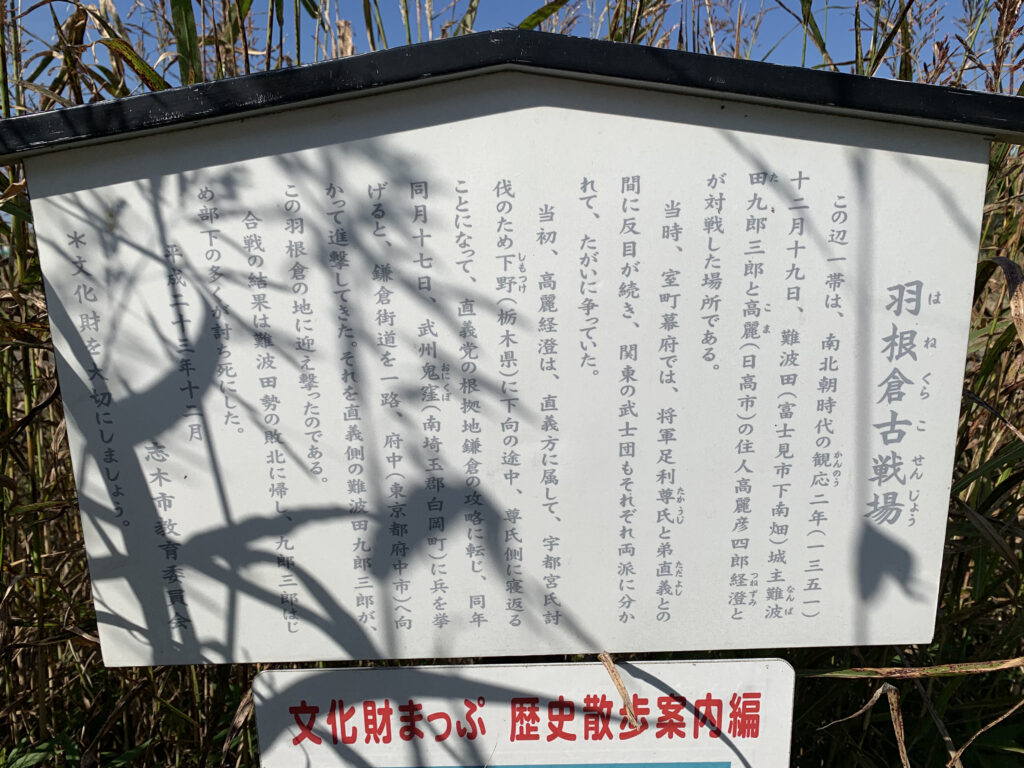 はねくらこせんじょう
羽根倉古戦場
かんのう
この辺一帯は、南北朝時代の観応二年(一三五一)
なんば
十二月十九日、難波田(富士見市下南畑)城主難波
た こま つねずみ
田九郎三郎と高麗(日高市)の住人高麗彦四郎経澄と
が対戦した場所である。
たかうじ ただよし
当時、室町幕府では、将軍足利尊氏と弟直義との
間に反目が続き、関東の武士団もそれぞれ両派に分か
れて、たがいに争っていた。
当初、高麗経澄は、直義方に属して、宇都宮氏討
しもつけ
伐のため下野(栃木県)に下向の途中、尊氏側に寝返る
ことになって、直義党の根拠地鎌倉の攻略に転じ、同年
おにくぼ
同月十七日、武州鬼窪(南埼玉郡白岡町)に兵を挙
げると、鎌倉街道を一路、府中(東京都府中市)へ向
かって進撃してきた。それを直義側の難波田九郎三郎が、
この羽根倉の地に迎え撃ったのである。
合戦の結果は難波田勢の敗北に帰し、九郎三郎はじ
め部下の多くが討ち死にした。
平成二十三年十二月
志木市教育委員会
*文化財を大切にしましょう。
文化財まっぷ 歴史散歩案内編